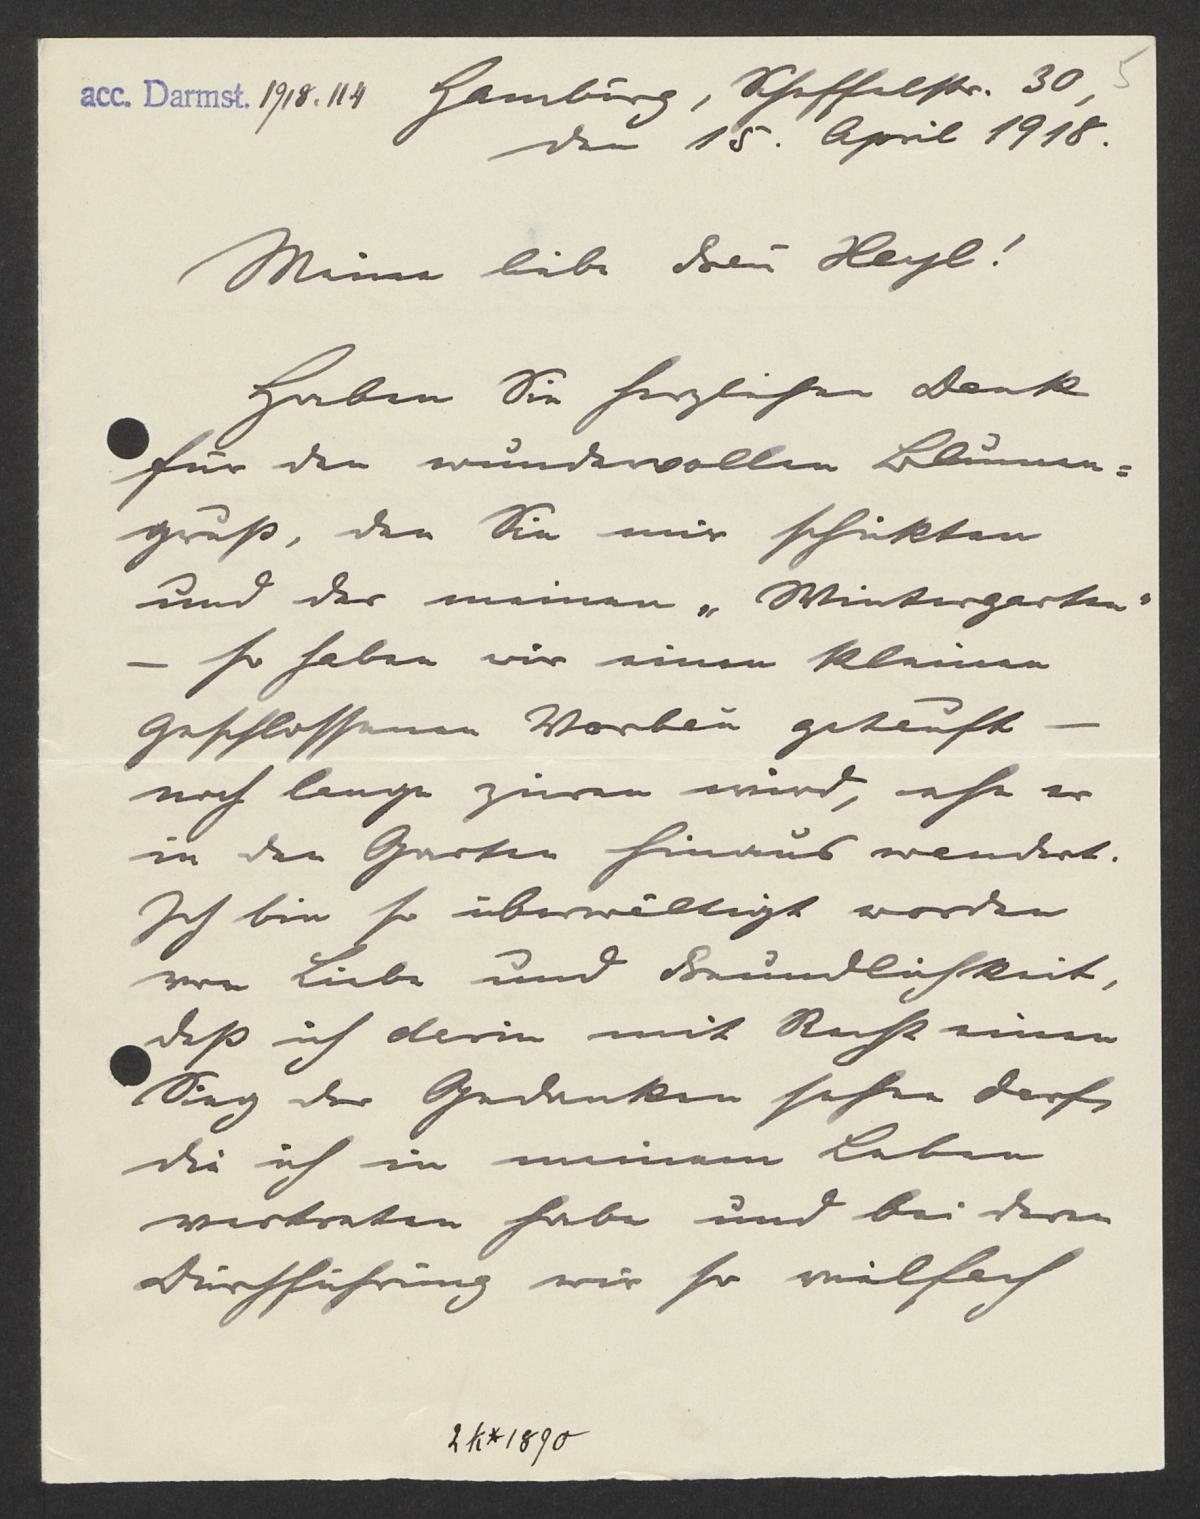 acc. Darmst. 1918.114
5
Hamburg, Scheffelstr. 30,
den 15. April 1918.
Meine liebe Frau Heyl!
Haben Sie herzlichen Dank
für den wundervollen Blumen=
gruß, den Sie mir schickten
und der meinen „Wintergarten"
– so haben wir einen kleinen
geschlossenen Vorbau getauft –
noch lange zieren wird, ehe er
in den Garten hinaus wandert.
Ich bin so überwältigt worden
von Liebe und Freundlichkeit,
daß ich darin mit Recht einen
Sieg der Gedanken sehen darf,
die ich in meinem Leben
vertreten habe und bei deren
Durchführung wir so vielfach
2k*1890